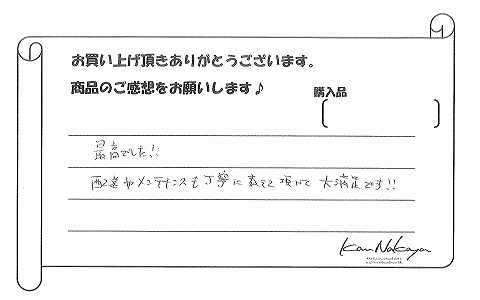 お買い上げ頂きありがとうございます。
商品のご感想をお願いします♪
購入品
最高でした!!
配送やメンテナンスも丁寧に教えて頂けて 大満足です!!
Kan Nakaya